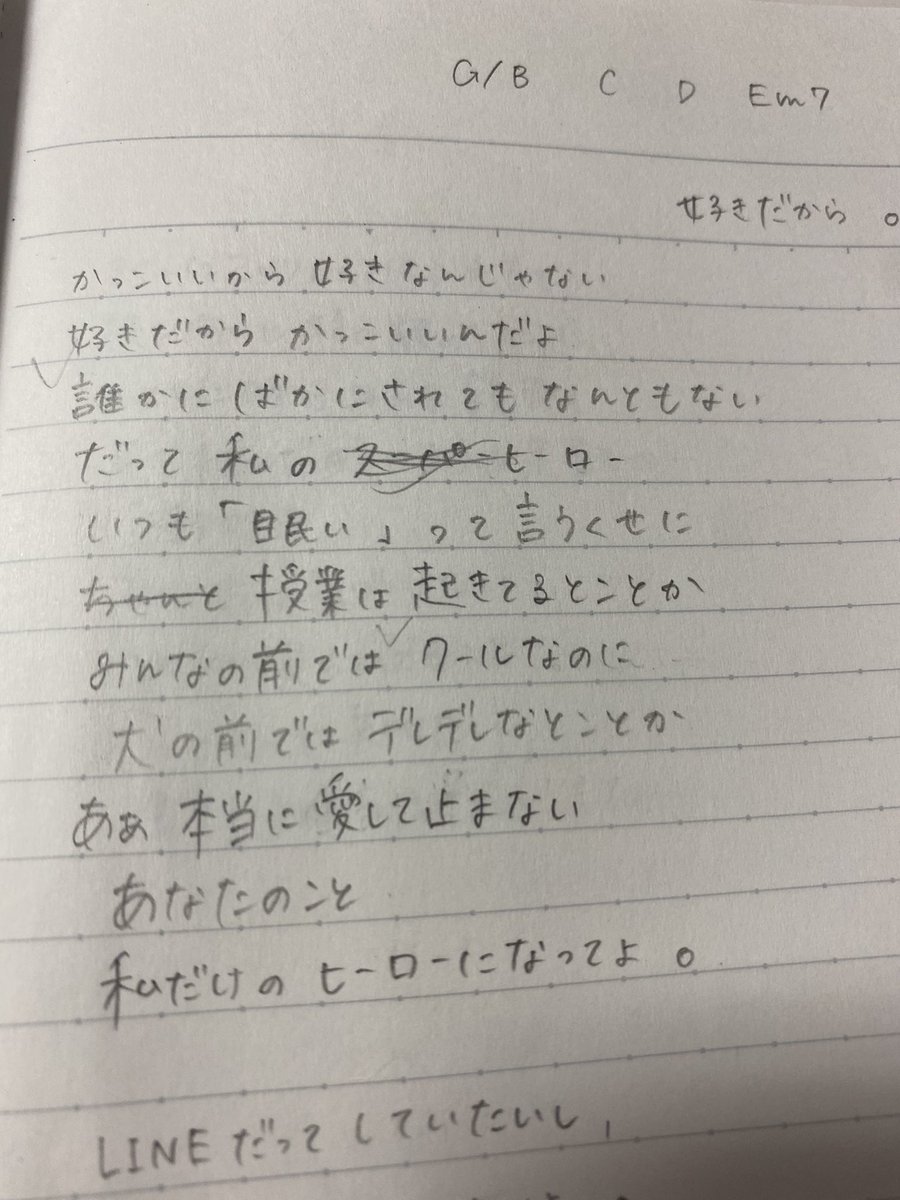 G/B C D Em7
好きだから。
かっこいいから 好きなんじゃない
好きだから かっこいいんだよ
誰かに ばかにされても なんともない
だって 私の スーパーヒーロー
いつも「眠い」って言うくせに
ちゃんと 授業は 起きてるとことか
みんなの前では クールなのに
犬の前では デレデレなとことか
あぁ 本当に 愛して止まない
あなたのこと
私だけの ヒーローになってよ。
LINEだって していたいし、